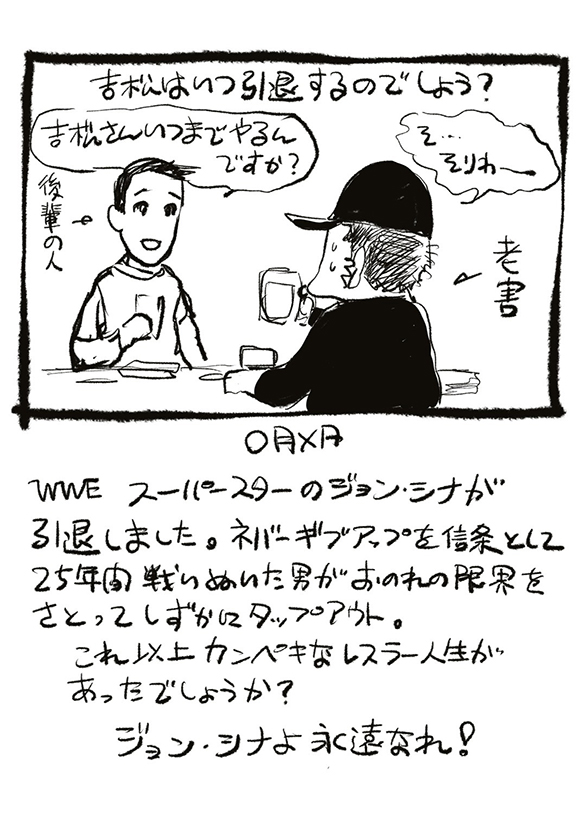 吉松はいつ引退するのでしょう?
吉松さんいつまでやるん
ですか?
そ…
そりわ〜
後輩の人
老害
〇月×日
WWE スーパースターのジョン・シナが
引退しました。ネバーギブアップを信条として
25年間戦いぬいた男がおのれの限界を
さとってしずかにタップアウト。
これ以上カンペキなレスラー人生が
あったでしょうか?
ジョン・シナよ永遠なれ!